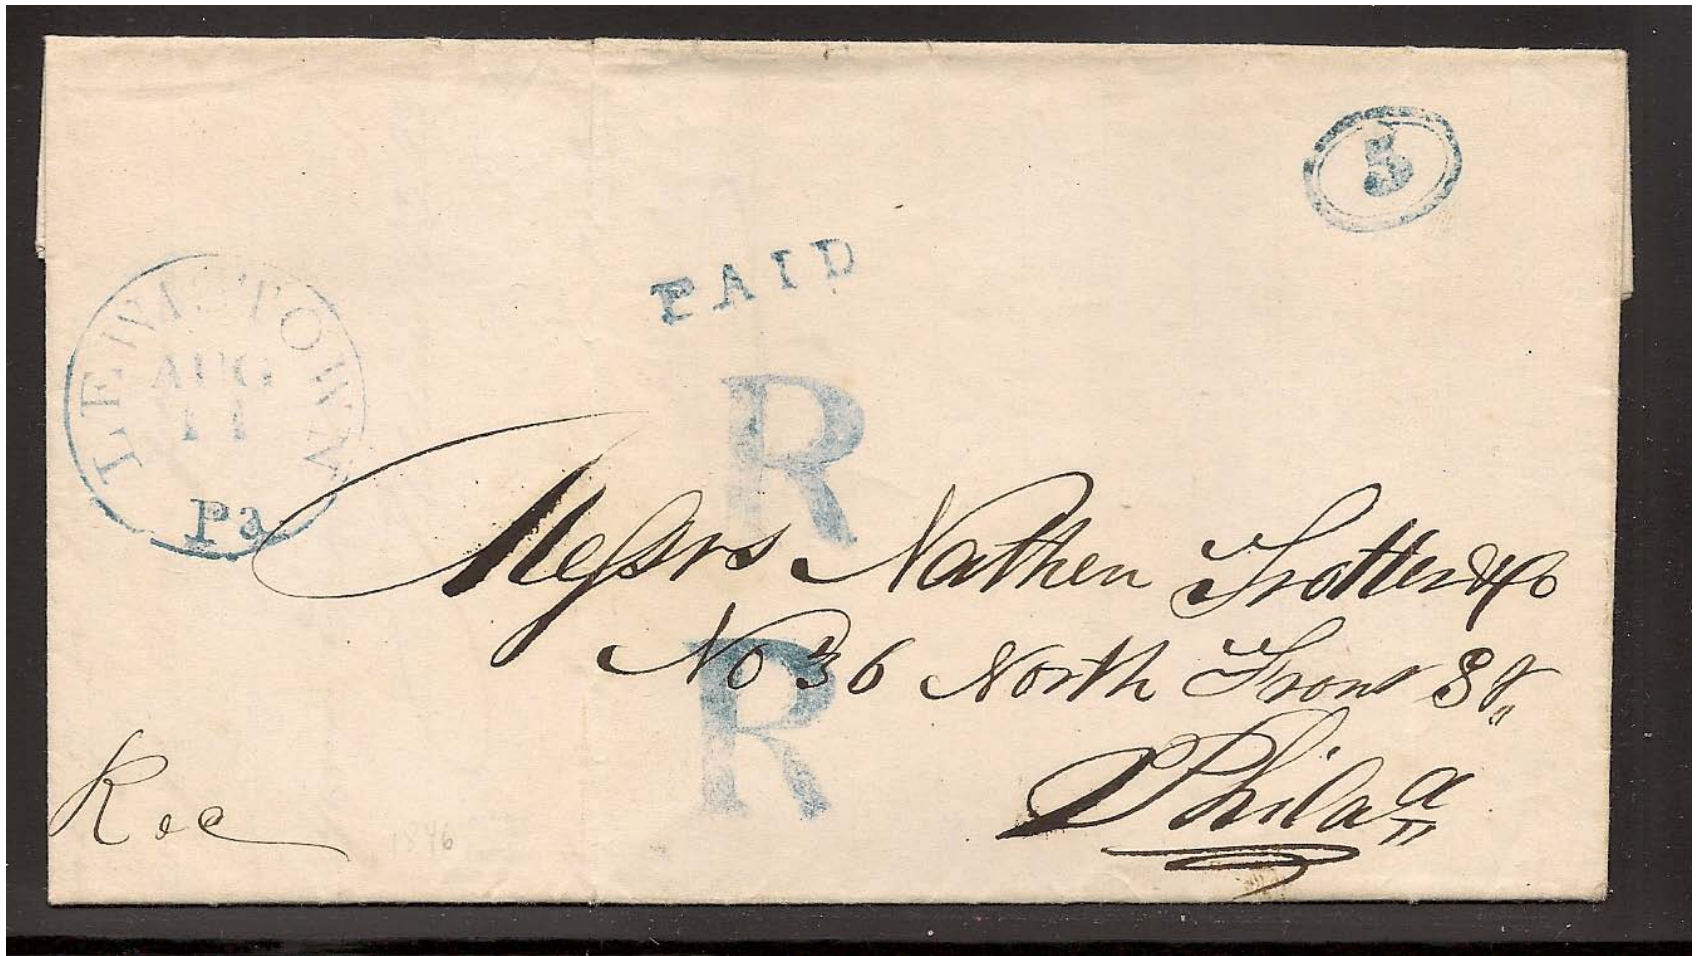 5
PAID
LEWISTOWN
AUG
11
Pa
R
Messrs Nathen Trotter & Co
No 36 North Front St,,
R
Philaª
Rec
1846